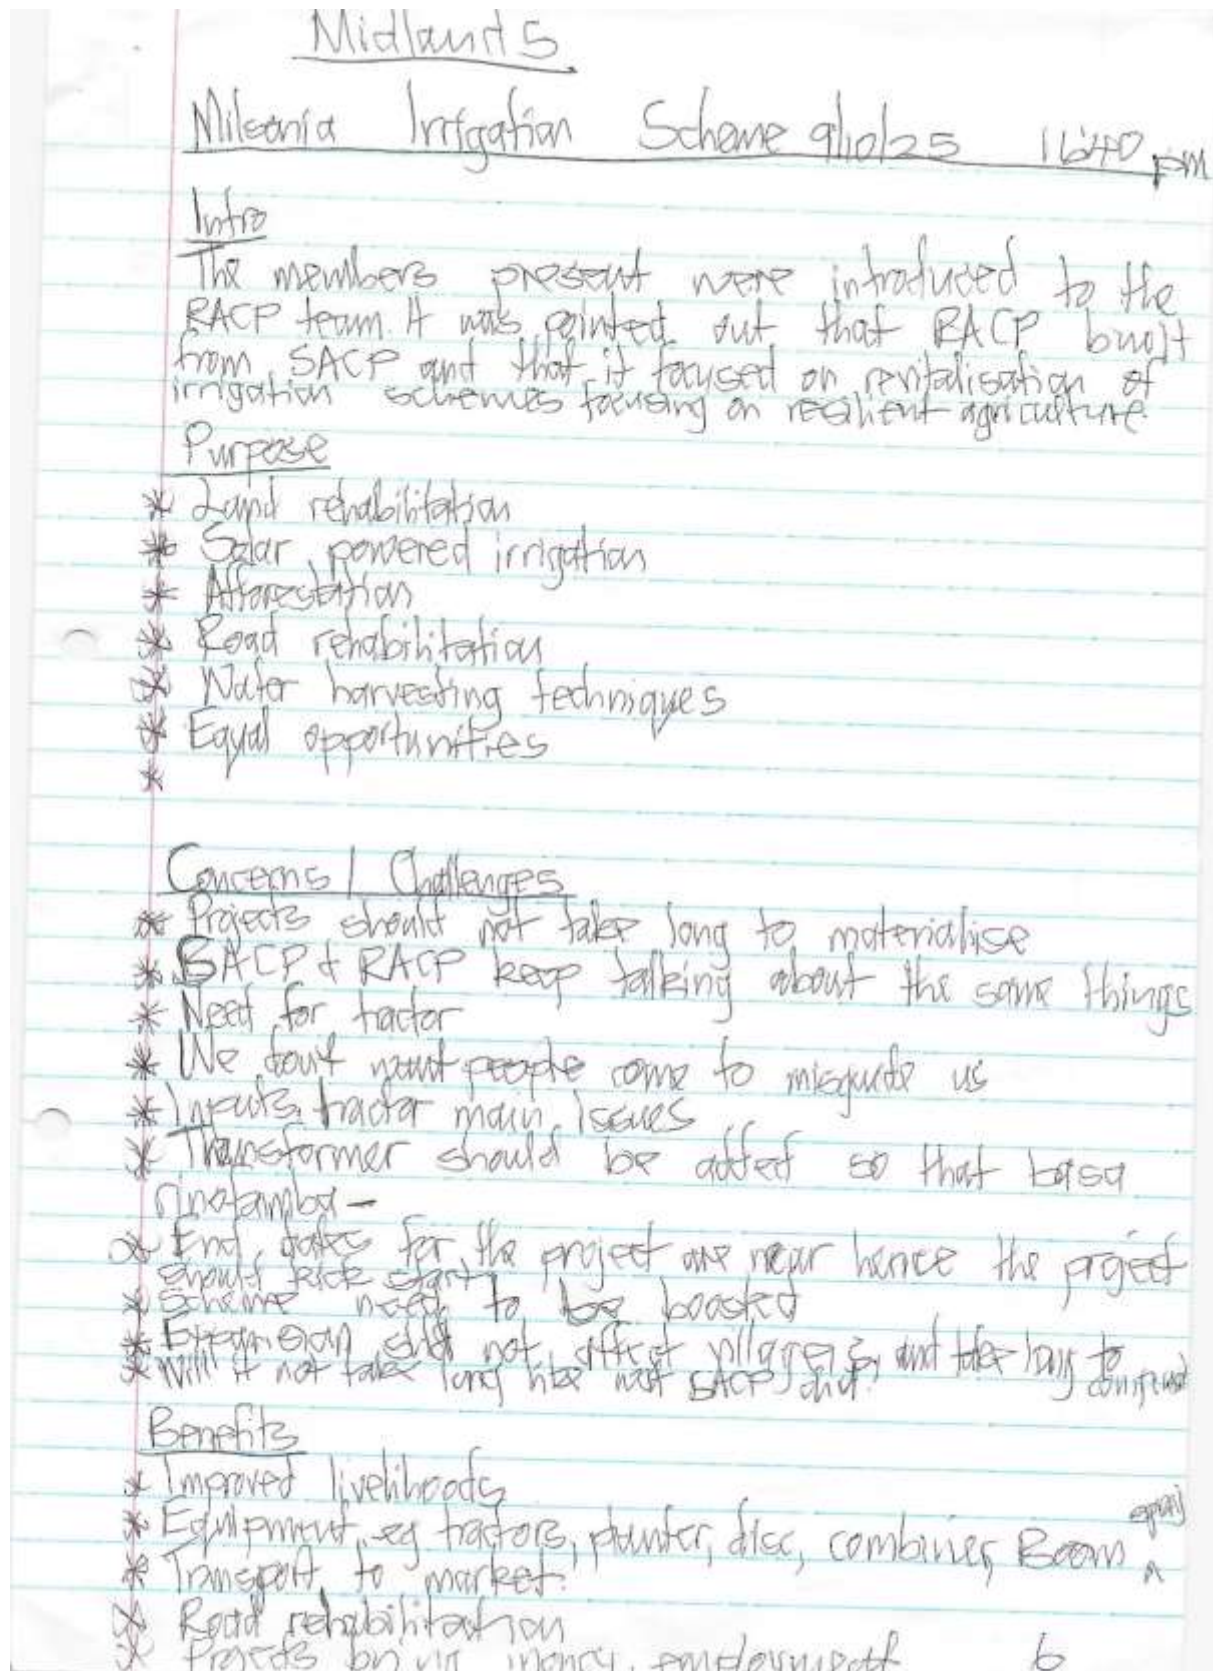 Midlands
Milsonia Irrigation Scheme 9/10/25 1640 pm
Intro
The members present were introduced to the
RACP team. It was pointed out that RACP built
from SACP and that it focused on revitalisation of
irrigation schemes focusing on resilient agriculture.
Purpose
* Land rehabilitation
* Solar powered irrigation
* Afforestation
* Road rehabilitation
* Water harvesting techniques
* Equal opportunities
*
Concerns / Challenges
* Projects should not take long to materialise
* SACP & RACP keep talking about the same things
* Need for tractor
* We dont want people come to misguide us
* Inputs, tractor main issues
* Transformer should be added so that basa
rinofamba -
* End dates for the project are near hence the project
should kick start
* Scheme need to be boosted
* Expansion shld not affect villagers, and take long to
* Will it not take long like wat SACP did?
Benefits
* Improved livelihoods
* Equipment eg tractors, planter, disc, combiner, Boom
* Transport to market.
* Road rehabilitation
* Projects bring money, employment 6